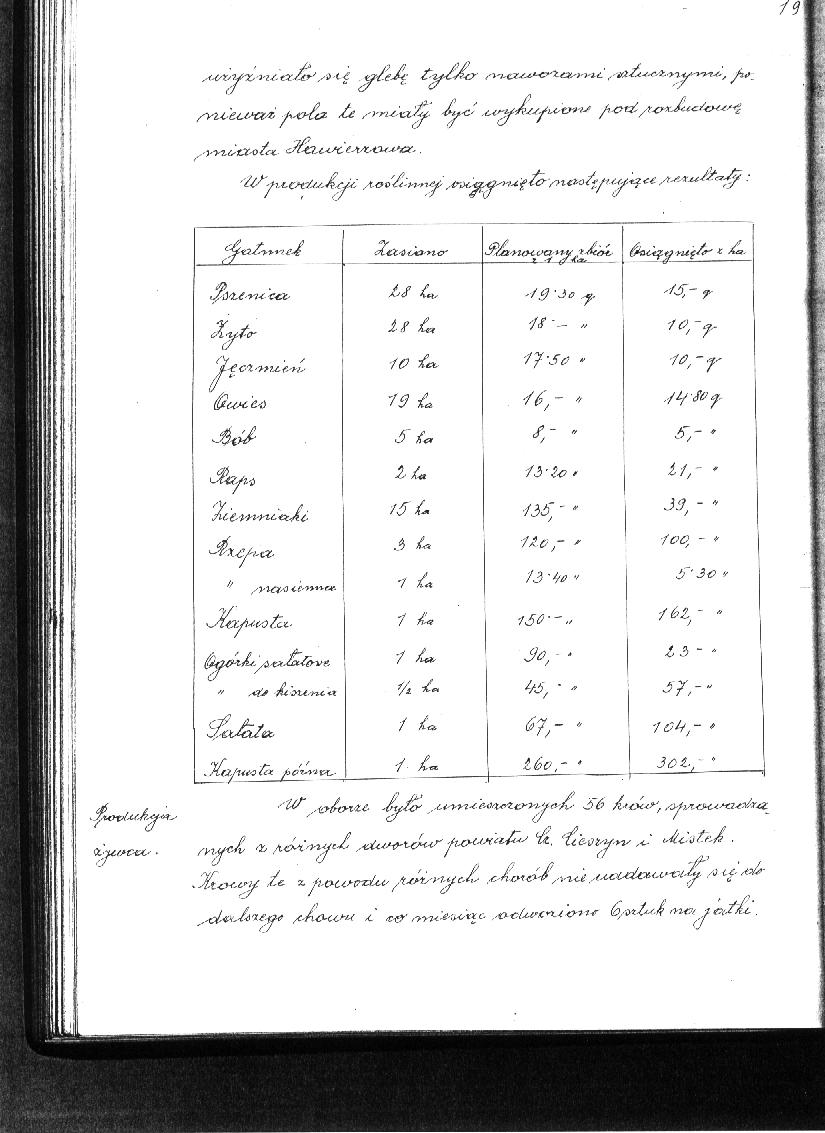 19
użyźniało się glebę tylko nawozami sztucznymi, po-
nieważ pola te miały być wykupione pod rozbudowę
miasta Hawierzowa.
W produkcji roślinnej osiągnięto następujące rezultaty:
Gatunek Zasiano Planowany zbiór z 1 ha Osiągnięto z ha
Pszenica 28 ha 19·30 q 15,- q
Żyto 28 ha 18·- " 10,- q
Jęczmień 10 ha 17·50 " 10,- q
Owies 19 ha 16,- " 14·80 q
Bób 5 ha 8,- " 5,- "
Raps 2 ha 13·20 " 21,- "
Ziemniaki 15 ha 135,- " 39,- "
Rzepa 3 ha 120,- " 100,- "
" nasienna 1 ha 13·40 " 5·30 "
Kapusta 1 ha 150·- " 162,- "
Ogórki sałatowe 1 ha 90,- " 23 - "
" do kiszenia 1/2 ha 45,- " 57,- "
Sałata 1 ha 67,- " 104,- "
Kapusta późna 1 ha 260,- " 302,- "
Produkcja
żywca.
W oborze było umieszczonych 56 krów, sprowadza-
nych z różnych dworów powiatu Cz. Cieszyn i Mistek.
Krowy te z powodu różnych chorób nie nadawały się do
dalszego chowu i co miesiąc odwożono 6 sztuk na jatki.